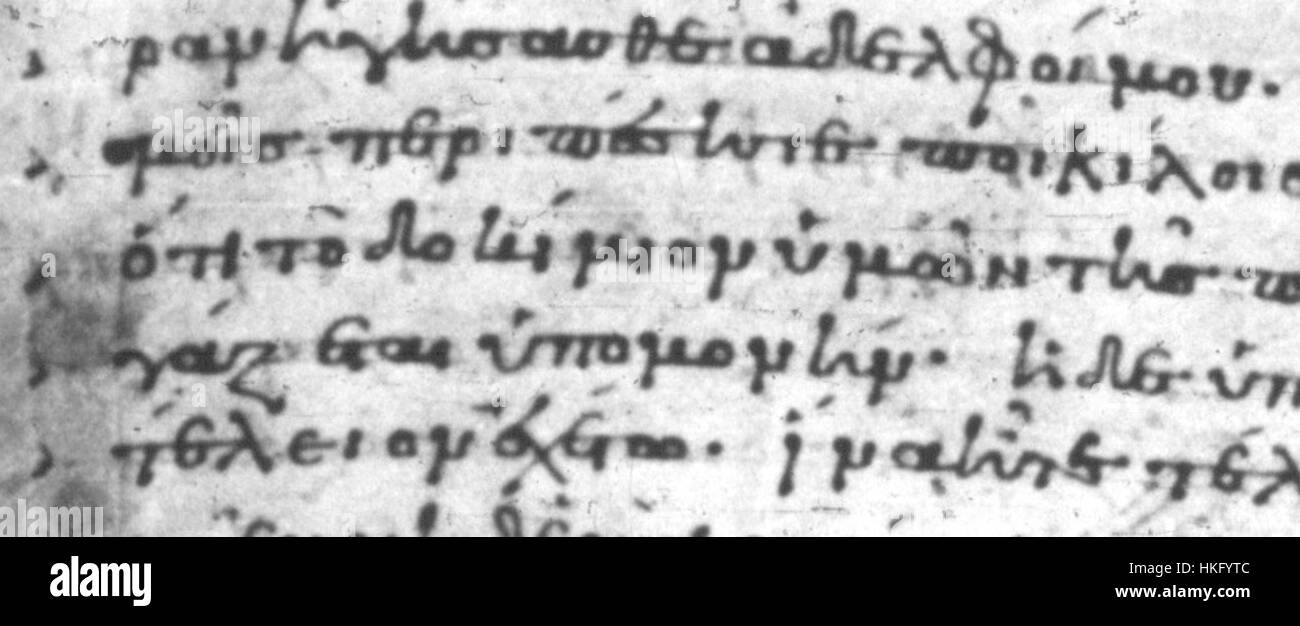 ραν ἡγήσασθε ἀδελφοί μου.
μοῖς περιπέσητε ποικίλοις
ὅτι τὸ δοκίμιον ὑμῶν τῆς π
γάζεται ὑπομονήν. ἡ δὲ ὑπ
τέλειον ἐχέτω. ἵνα ἦτε τέλ
alamy
Image ID: HKFYTC
www.alamy.com